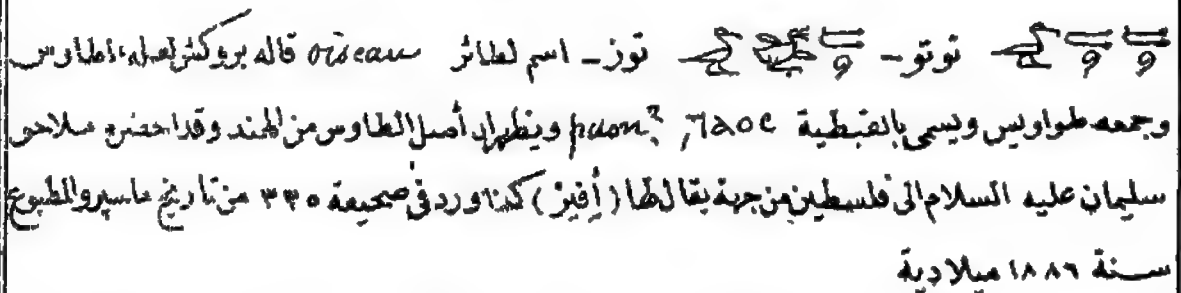 توتو - توز - اسم لطائر oiseau قاله بروكش لعله الطاوس
وجمعه طواويس ويسمى بالقبطية ⲧⲁⲟⲥ, paon? ويظهر ان أصل الطاوس من الهند وقد احضره ملاحو
سليمان عليه السلام الى فلسطين من جهة يقال لها (أفير) كذا ورد في صحيفة ٣٣٥ من تاريخ ماسپرو المطبوع
سنة ١٨٨٦ ميلادية